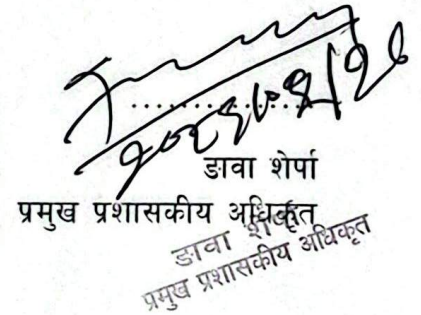 ....................
ङावा शेर्पा
प्रमुख प्रशासकीय अधिकृत
ङावा शेर्पा
प्रमुख प्रशासकीय अधिकृत